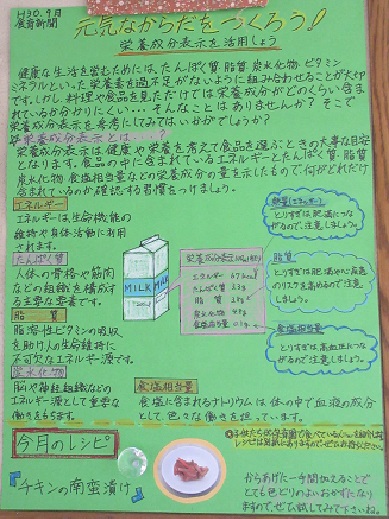 H30.9月
食育新聞
元気なからだをつくろう!
栄養成分表示を活用しよう
健康な生活を営むためには、たんぱく質・脂質・炭水化物・ビタミン
ミネラルといった栄養素を過不足がないように組み合わせることが大切
です。しかし、料理や食品を見ただけでは栄養成分がどのくらい含ま
れているか分かりにくい・・・そんなことはありませんか?そこで
栄養成分表示を参考にしてみてはいかがでしょうか?
栄養成分表示とは・・・・?
栄養成分表示は健康や栄養を考えて食品を選ぶときの大事な目安
となります。食品の中に含まれているエネルギーとたんぱく質・脂質
炭水化物・食塩相当量などの栄養成分の量を示したもので、何がどれだけ
含まれているのか確認する習慣をつけましょう。
エネルギー
エネルギーは生命機能の
維持や身体活動に利用
されます。
たんぱく質
人体の骨格や筋肉
などの組織を構成す
る主要な要素です。
脂質
脂溶性ビタミンの吸収
を助け人の生命維持に
不可欠なエネルギー源です。
炭水化物
脳や神経組織などの
エネルギー源として重要な
働きをもちます。
MILK
MILK
栄養成分表示
エネルギー
たんぱく質
脂質
炭水化物
食塩相当量
とりすぎは肥満につな
がるので、注意しましょう。
脂質
とりすぎは肥満や心疾患
のリスクを高めるので注意
しましょう。
食塩相当量
とりすぎは、高血圧につな
がるので注意しましょう。
食塩相当量
食塩に含まれるナトリウムは体の中で血液の成分
として、色々な働きを担っています。
今月のレシピ
『チキンの南蛮漬け』
からあげに一手間加えることで
とても色どりのよいおかずになり
ますので、ぜひ試してみて下さいね。